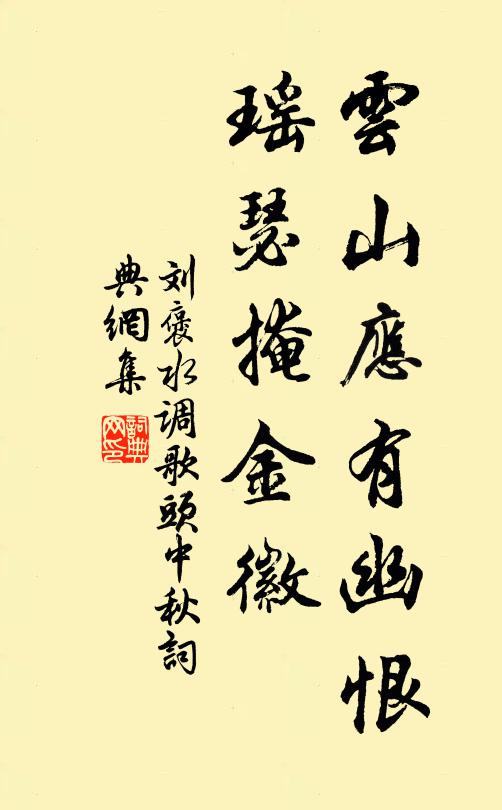 雲山應有幽恨
瑶瑟掩金徽
刘褒水调歌頭中秋詞
典網集
詞典
网印